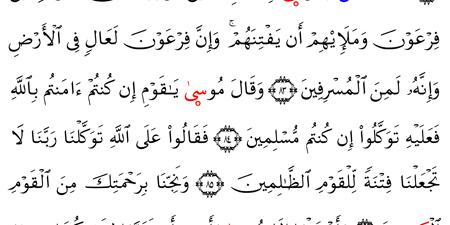 فِرْعَوْنَ وَمَلَإِي۟هِمْ أَن يَفْتِنَهُمْ ۚ وَإِنَّ فِرْعَوْنَ لَعَالٍ فِى ٱلْأَرْضِ
وَإِنَّهُۥ لَمِنَ ٱلْمُسْرِفِينَ ﴿٨٣﴾ وَقَالَ مُوسَىٰ يَـٰقَوْمِ إِن كُنتُمْ ءَامَنتُم بِٱللَّهِ
فَعَلَيْهِ تَوَكَّلُوٓا۟ إِن كُنتُم مُّسْلِمِينَ ﴿٨٤﴾ فَقَالُوا۟ عَلَى ٱللَّهِ تَوَكَّلْنَا رَبَّنَا لَا
تَجْعَلْنَا فِتْنَةً لِّلْقَوْمِ ٱلظَّـٰلِمِينَ ﴿٨٥﴾ وَنَجِّنَا بِرَحْمَتِكَ مِنَ ٱلْقَوْمِ